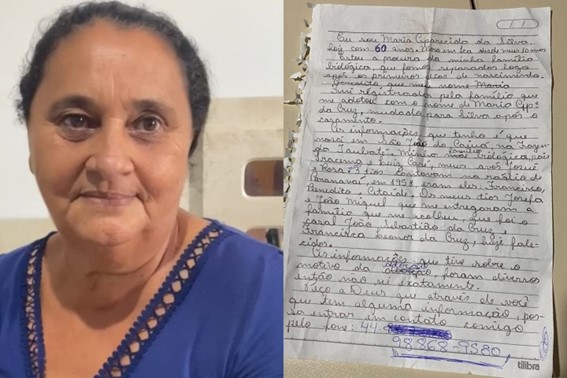 Eu sou Maria Aparecida da Silva,
hoje com 60 anos,
Estou a procura da minha família
biológica, que fomos separados logo
após os primeiros de nascimento.
que meu nome Maria
Fui registrada pela família que
me adotou com o nome de Maria Apª
da Cruz, mudado para Silva após o
casamento.
As informações que tenho é que
nasci em São João do Caiuá, na
família biológica, pais
Iracema e Luiz meus avós José
e Rosa e 3 tios
Paranavaí, em eram eles: Francisco,
Benedito e Os meus tios Josefa
e João Miguel que me entregaram a
família que me acolheu, que foi o
casal João Sebastião da Cruz e
Francisca da Cruz, hoje fale-
cidos.
As informações que tive sobre o
motivo da foram diversos
então não sei exatamente.
Peço a Deus que através de você
que tem alguma informação, pos-
sa entrar em contato comigo
pelo fone: 44
98868-9580
tilibra